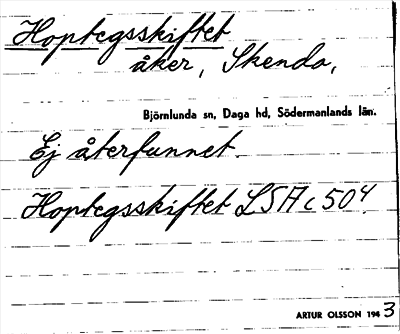 Hoptegsskiftet
åker, Skenda,
Björnlunda sn, Daga hd, Södermanlands län.
Ej återfunnet.
Hoptegsskiftet LSA c 504.
ARTUR OLSSON 1943